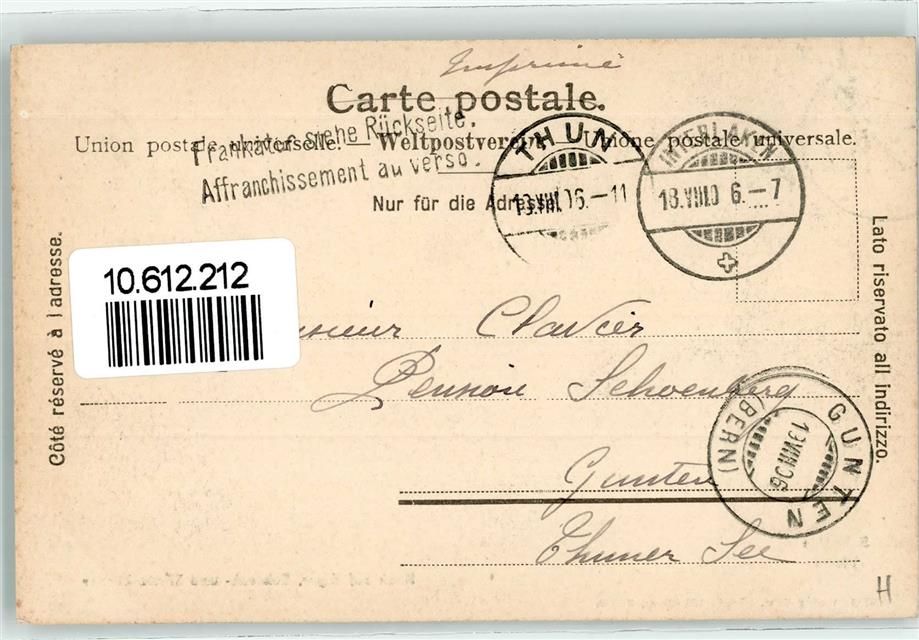 Imprimé
Carte postale.
Union postale universelle. Weltpostverein. Unione postale universale.
Frankatur siehe Rückseite.
Affranchissement au verso.
Nur für die Adresse.
THUN
13.VIII.06.-11
INTERLAKEN
18.VIII.06.-7
Côté réservé à l adresse.
Lato riservato all indirizzo.
10.612.212
Clavier
Pension Schoenberg
Gunten
Thuner See
GUNTEN
(BERN)
19.VIII.06
H